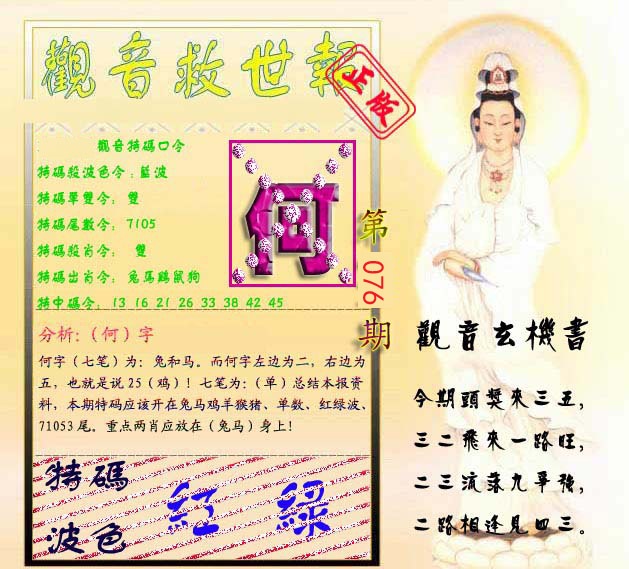 觀音救世報
正版
觀音特碼口令
特碼殺波色令：藍波
特碼單雙令： 雙
特碼尾數令： 7105
特碼殺肖令： 雙
特碼出肖令： 兔馬鷄鼠狗
特中碼令： 13 16 21 26 33 38 42 45
何
第076期
分析:（何）字
何字（七笔）为：兔和马。而何字左边为二，右边为
五，也就是说 25（鸡）！七笔为:（单）总结本报资
料，本期特码应该开在兔马鸡羊猴猪、单数、红绿波、
71053 尾。重点两肖应放在（兔马）身上！
特碼
波色
紅 綠
觀音玄機書
今期頭獎來三五，
三二飛來一路旺，
二三流落九爭強，
二路相逢見四三。